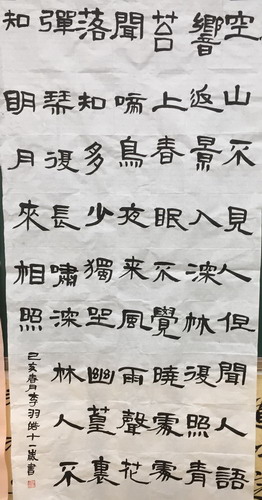 空山不見人但聞人語
響返景入深林復照青
苔上春眠不覺曉處處
聞啼鳥夜來風雨聲花
落知多少獨坐幽篁裏
彈琴復長嘯深林人不
知明月來相照
己亥春月李羽皓十一歲書